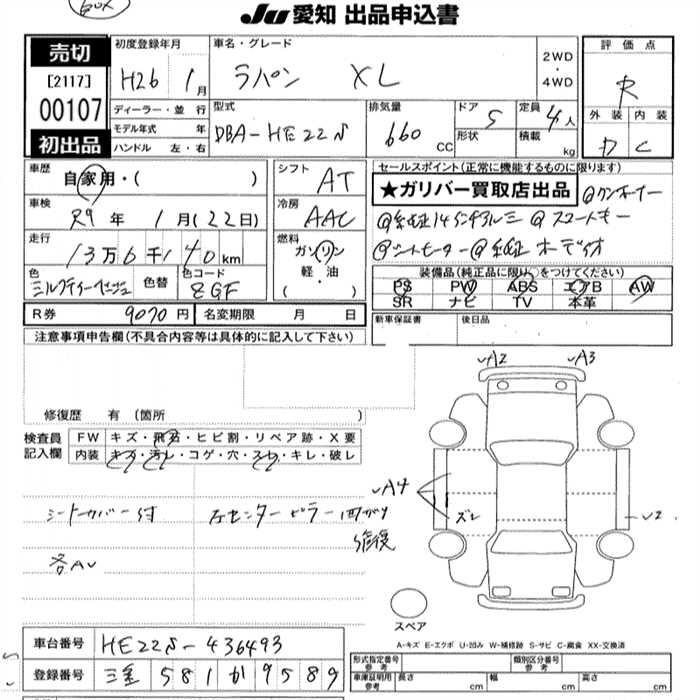 JU 愛知 出品申込書
売切
[2117]
00107
初出品
初度登録年月
H26 1月
車名・グレード
ラパン XL
2WD
・
4WD
評価点
R
ディーラー・並行
モデル年式 年
ハンドル 左・右
型式
DBA-HE22S
排気量
660 CC
ドア 5
形状
定員 4人
積載 kg
外装 内装
D C
車歴
自家用・( )
シフト AT
セールスポイント(正常に機能するものに限ります)
★ガリバー買取店出品
@ワンオーナー
車検
R9年 1月(22日)
冷房 AAC
@純正14インチアルミ @スマートキー
走行
13万6千140km
燃料
ガソリン
軽・油
( )
@シートヒーター @純正オーディオ
色
ミルクティーベージュ
色替
色コード
ZGF
装備品(純正品に限り○をつけてください)
PS PW ABS エアB AW
SR ナビ TV 本革
R券 9070円
名変期限 月 日
新車保証書
後日品
注意事項申告欄(不具合内容等は具体的に記入して下さい)
修復歴 有(箇所 )
検査員
記入欄
FW キズ・飛石・ヒビ割・リペア跡・X要
内装 キズ・汚れ・コゲ・穴・スレ・キレ・破レ
A2 A3
A4
ズレ
シートカバー付
左センターピラー曲がり
修復
各AU
スペア
A-キズ E-エクボ U-凹み W-補修跡 S-サビ C-腐食 XX-交換済
車台番号 HE22S-436493
登録番号 三重 581 か 9589
型式指定番号
参考
類別区分番号
参考
車庫証明用
参考
長さ cm 幅 cm 高さ cm